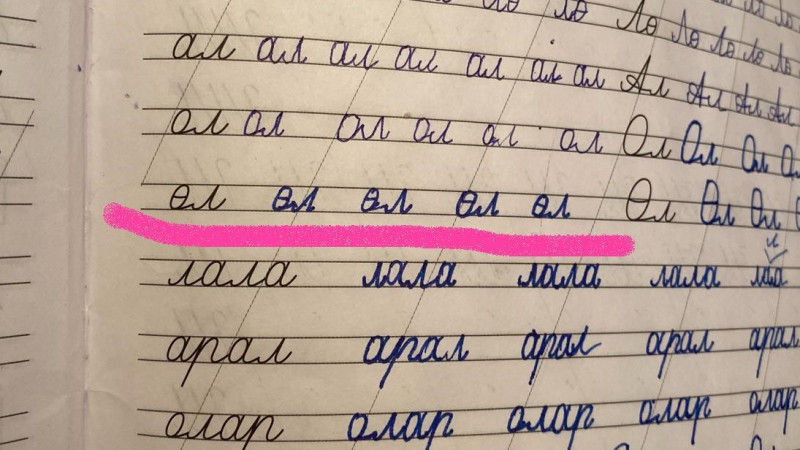 ло ло Ло Ло Ло Ло Ло
ал ал ал ал ал ал ал Ал Ал Ал Ал
ол ол ол ол ол ол Ол Ол Ол
өл өл өл өл өл Өл Өл Өл
лала лала лала лала лала
арал арал арал арал арал
олар олар олар олар олар